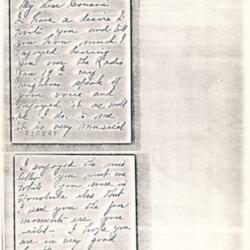 My dear Cousin
I have a desire to
write you and tell
you how much I
enjoyed hearing
you over the Radio
Jan 19th my
neighbors speak of
your voice and
enjoyed it as well
as I do, to me
it is very musical
I enjoyed the nice
letter you sent me
while you were in
Honolulu also that
I used you the few
moments we your
visit - I hope you
are in very good